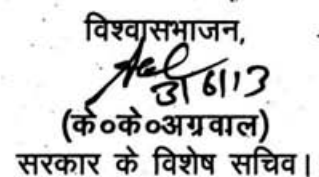 विश्वासभाजन,
6/13
(के०के०अग्रवाल)
सरकार के विशेष सचिव।